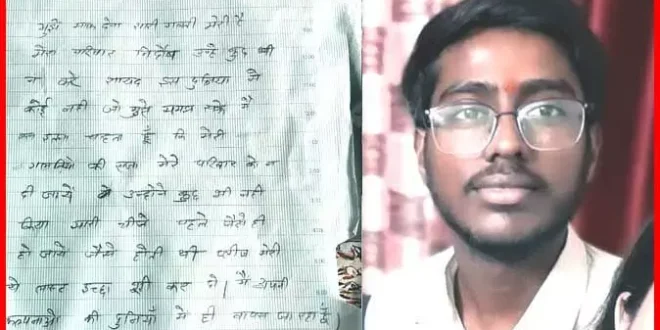 मुझे माफ कर देना सारी गलती मेरी है
मेरा परिवार निर्दोष उन्हे कुछ भी
न करे शायद इस दुनिया मे
कोई नही जो मुझे समझ सके मै
बस इतना चाहता हूँ कि मेरी
गलतियो की सजा मेरे परिवार के न
दी जाये उन्होने कुछ भी नही
किया सारी चीजे पहले जैसी ही
हो जाये जैसी होती थी प्लीज मेरी
ये लास्ट इच्छा पूरी कर दे। मै अपनी
कल्पनाओ की दुनियाँ मे ही वापस जा रहा हूँ।